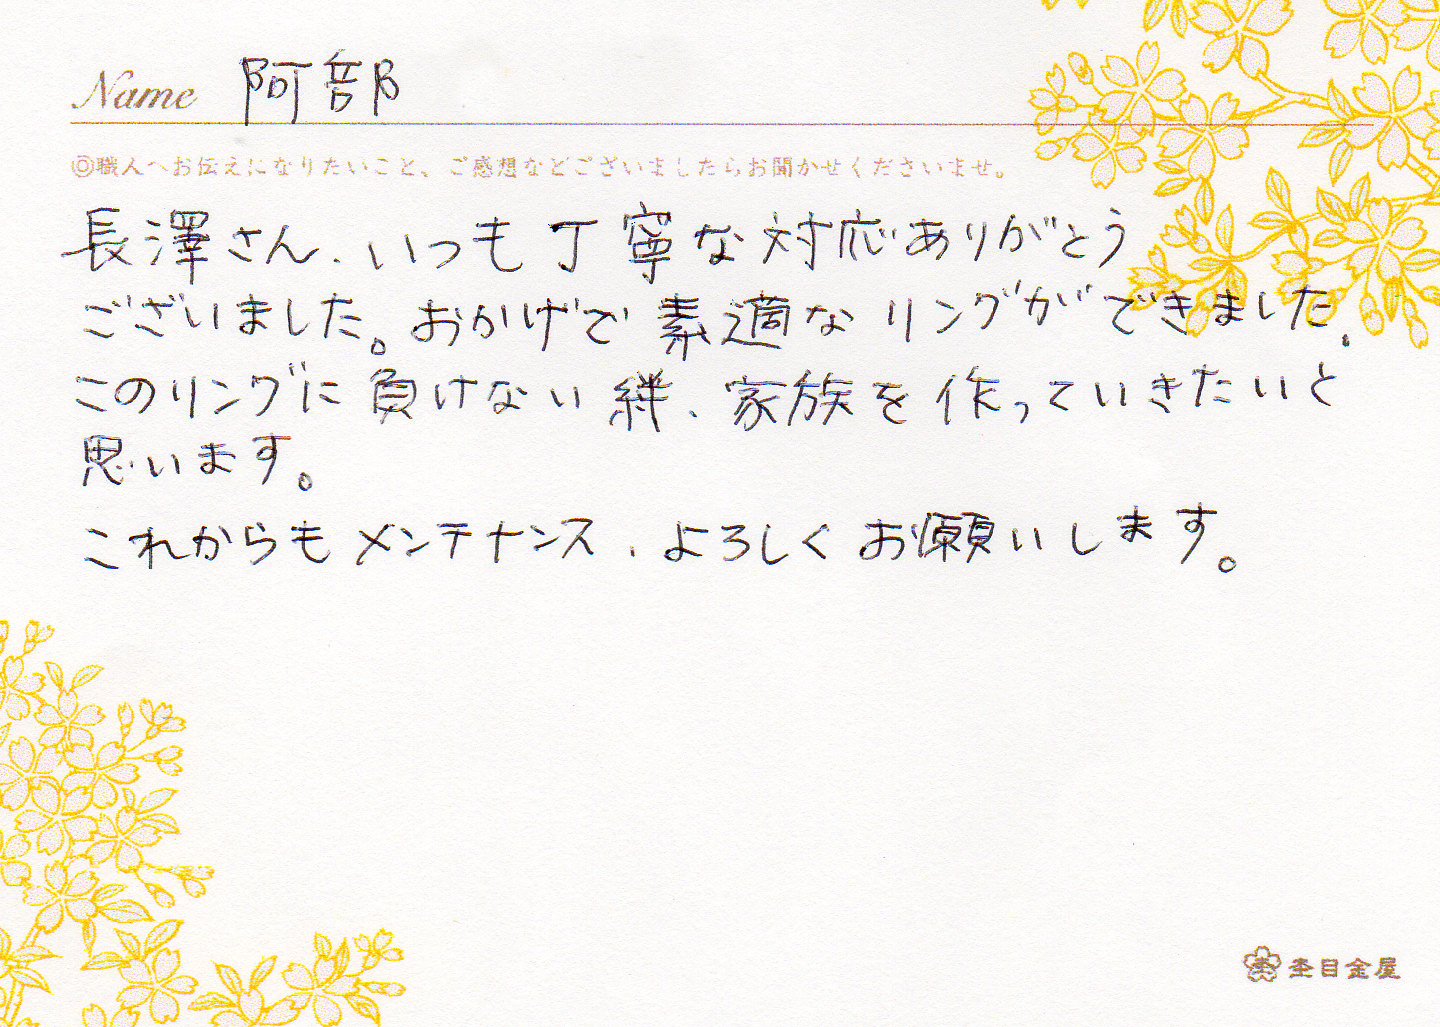 Name 阿部
◎職人へお伝えになりたいこと、ご感想などございましたらお聞かせくださいませ。
長澤さん、いつも丁寧な対応ありがとう
ございました。おかげで素適なリングができました。
このリングに負けない絆、家族を作っていきたいと
思います。
これからもメンテナンス、よろしくお願いします。
杢目金屋